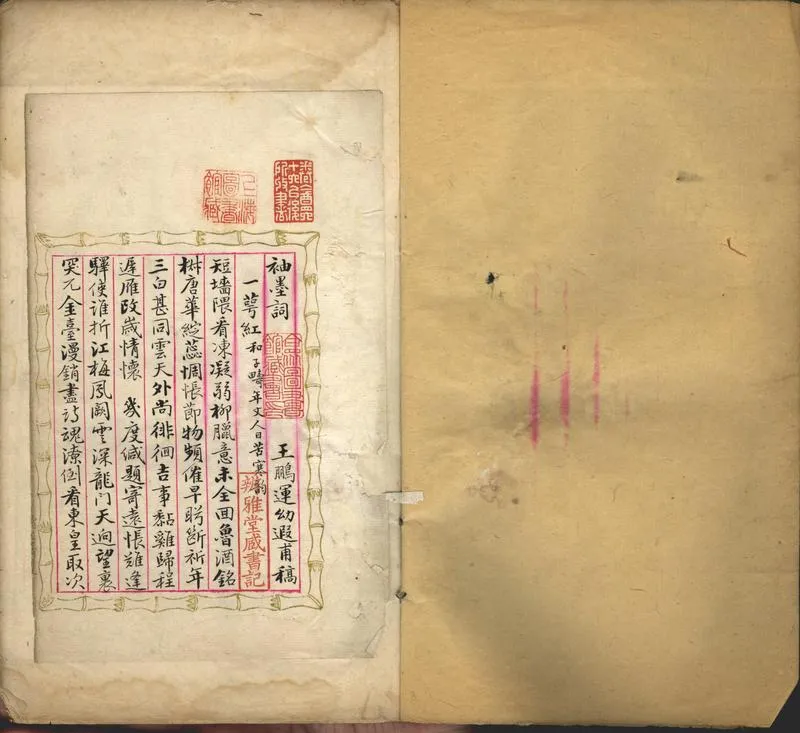 上海圖書館藏
袖墨詞 王鵬運幼遐甫稿
一萼紅 和子疇年丈人日苦寒韵
雅堂藏書記
短墻隈看凍凝弱柳臘意未全回魯酒銘
椒唐華綻蕊惆悵節物頻催早盻斷祈年
三白甚同雲天外尚徘徊吉事黏雞歸程
遲雁改歲情懷 幾度緘題寄遠悵難逢
驛使誰折江梅鳳闕雲深龍門天迥望裏
突兀金臺漫銷盡詩魂潦倒看東皇取次